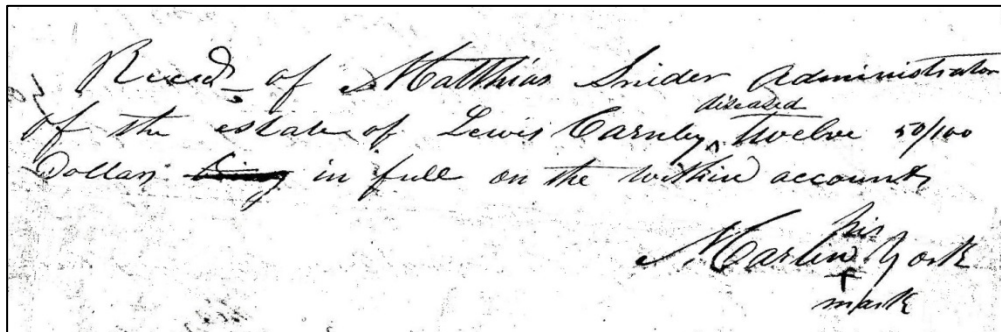 Recd of Matthias Snider Administrator
of the estate of Lewis Carnley ^ diseased Twelve 50/100
Dollars in full on the within account
his
Martin X York
mark